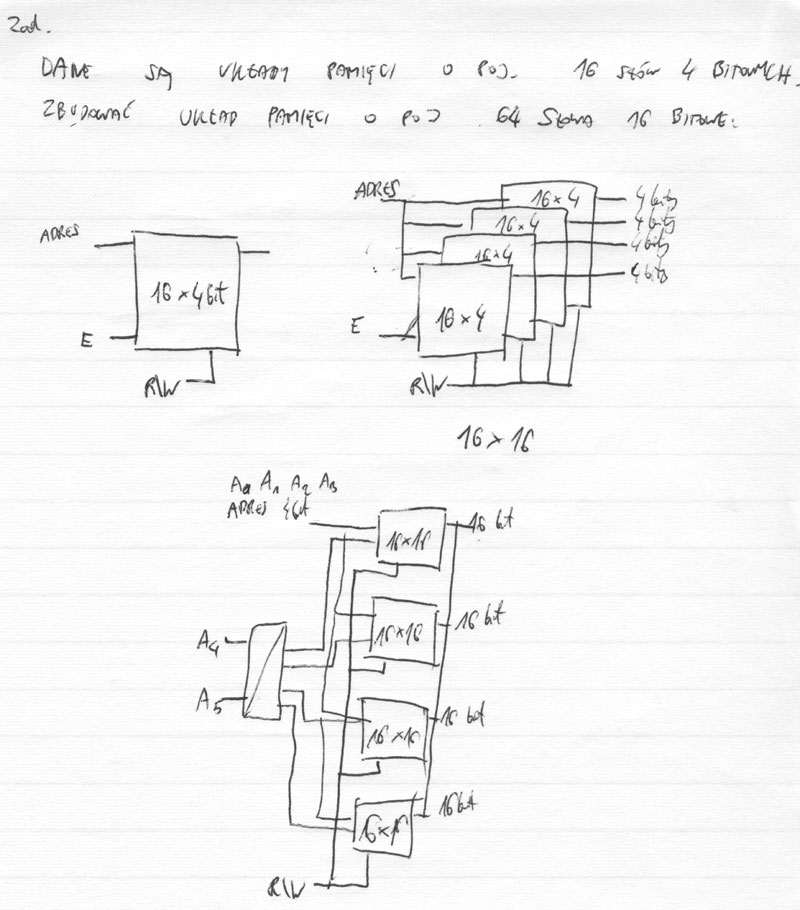 Zad.
DANE SĄ UKŁADY PAMIĘCI O POJ. 16 SŁÓW 4 BITOWYCH.
ZBUDOWAĆ UKŁAD PAMIĘCI O POJ 64 SŁOWA 16 BITOWE.
ADRES
16×4bit
E
R\W
ADRES
16×4 4 bity
16×4 4 bity
16×4 4 bity
16×4 4 bity
E
R\W
16×16
A0 A1 A2 A3
ADRES 4bit
16×16 16 bit
16×16 16 bit
A4
A5
16×16 16 bit
16×16 16 bit
R\W